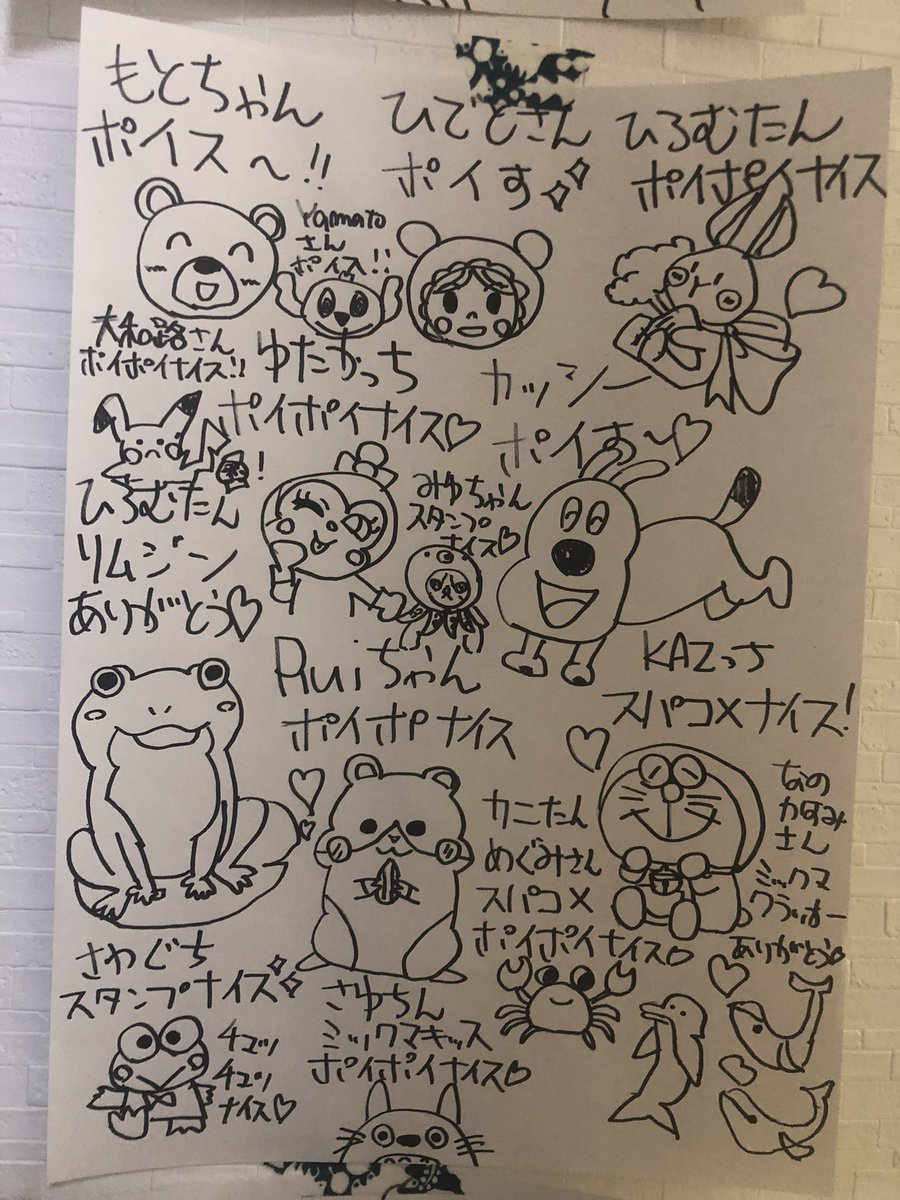 もとちゃん
ポイス〜!!
ひでとさん
ポイす
ひろむたん
ポイポイナイス
Yamato
さん
ポイス!!
大和路さん
ポイポイナイス!!
ゆたかっち
ポイポイナイス♡
カッシー
ポイすー♡
!
ひろむたん
リムジン
ありがとう♡
みゆちゃん
スタンプ
ナイス♡
Ruiちゃん
ポイポPナイス
KAZっち
スパコメナイス!
カニたん
めぐみさん
スパコメ
ポイポイナイス♡
なの
かすみ
さん
ミックマ
ありがとう♡
さわぐち
スタンプナイス
チュッ
チュッ
ナイス♡
さゆちん
ミックマキッス
ポイポイナイス♡